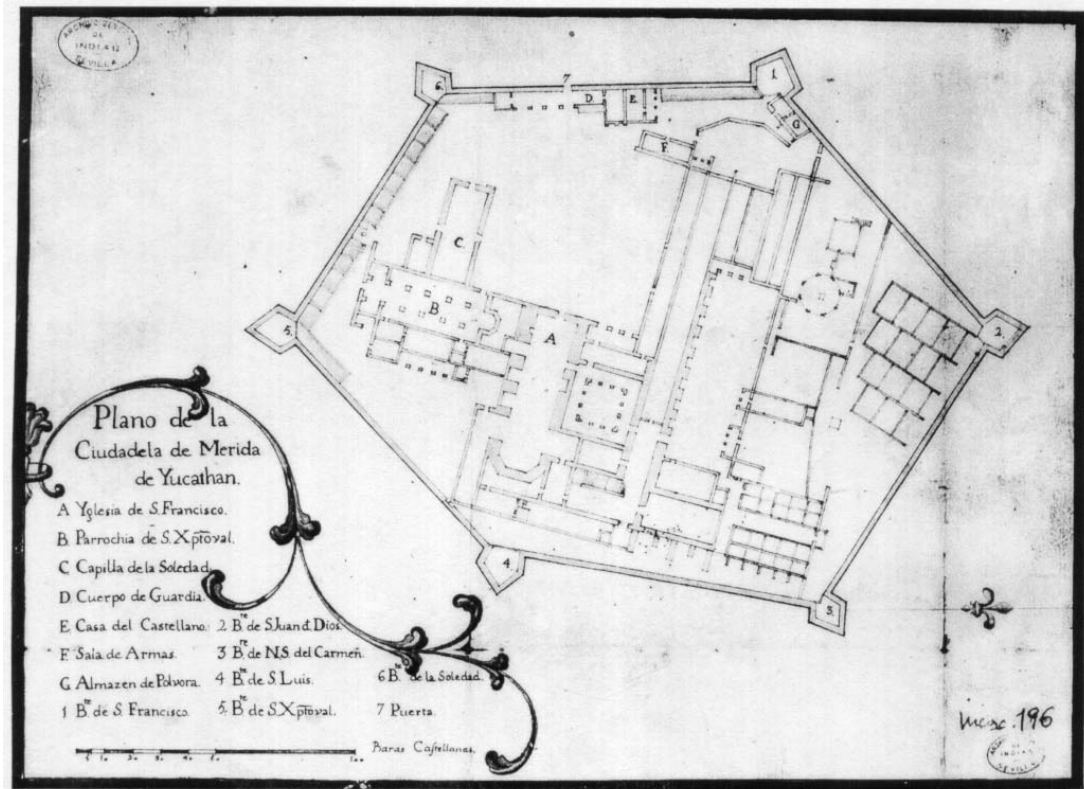 ARCHIVO GENERAL
DE
INDIAS
SEVILLA
6.
7
1.
D.
E.
G
F.
C.
B
A
5.
2.
4.
3.
Plano de la
Ciudadela de Merida
de Yucathan.
A Yglesia de S. Francisco.
B. Parrochia de S. Xptoval.
C Capilla de la Soledad.
D. Cuerpo de Guardia.
E. Casa del Castellano.
F. Sala de Armas.
G Almazen de Polvora.
1 B.te de S. Francisco.
2 B.te de S. Juan d. Dios.
3 B.te de N.S. del Carmen.
4 B.te de S. Luis.
5. B.te de S. Xptoval.
6 B.te de la Soledad.
7 Puerta.
Baras Castellanas.
100
196
INDIAS
SEVILLA